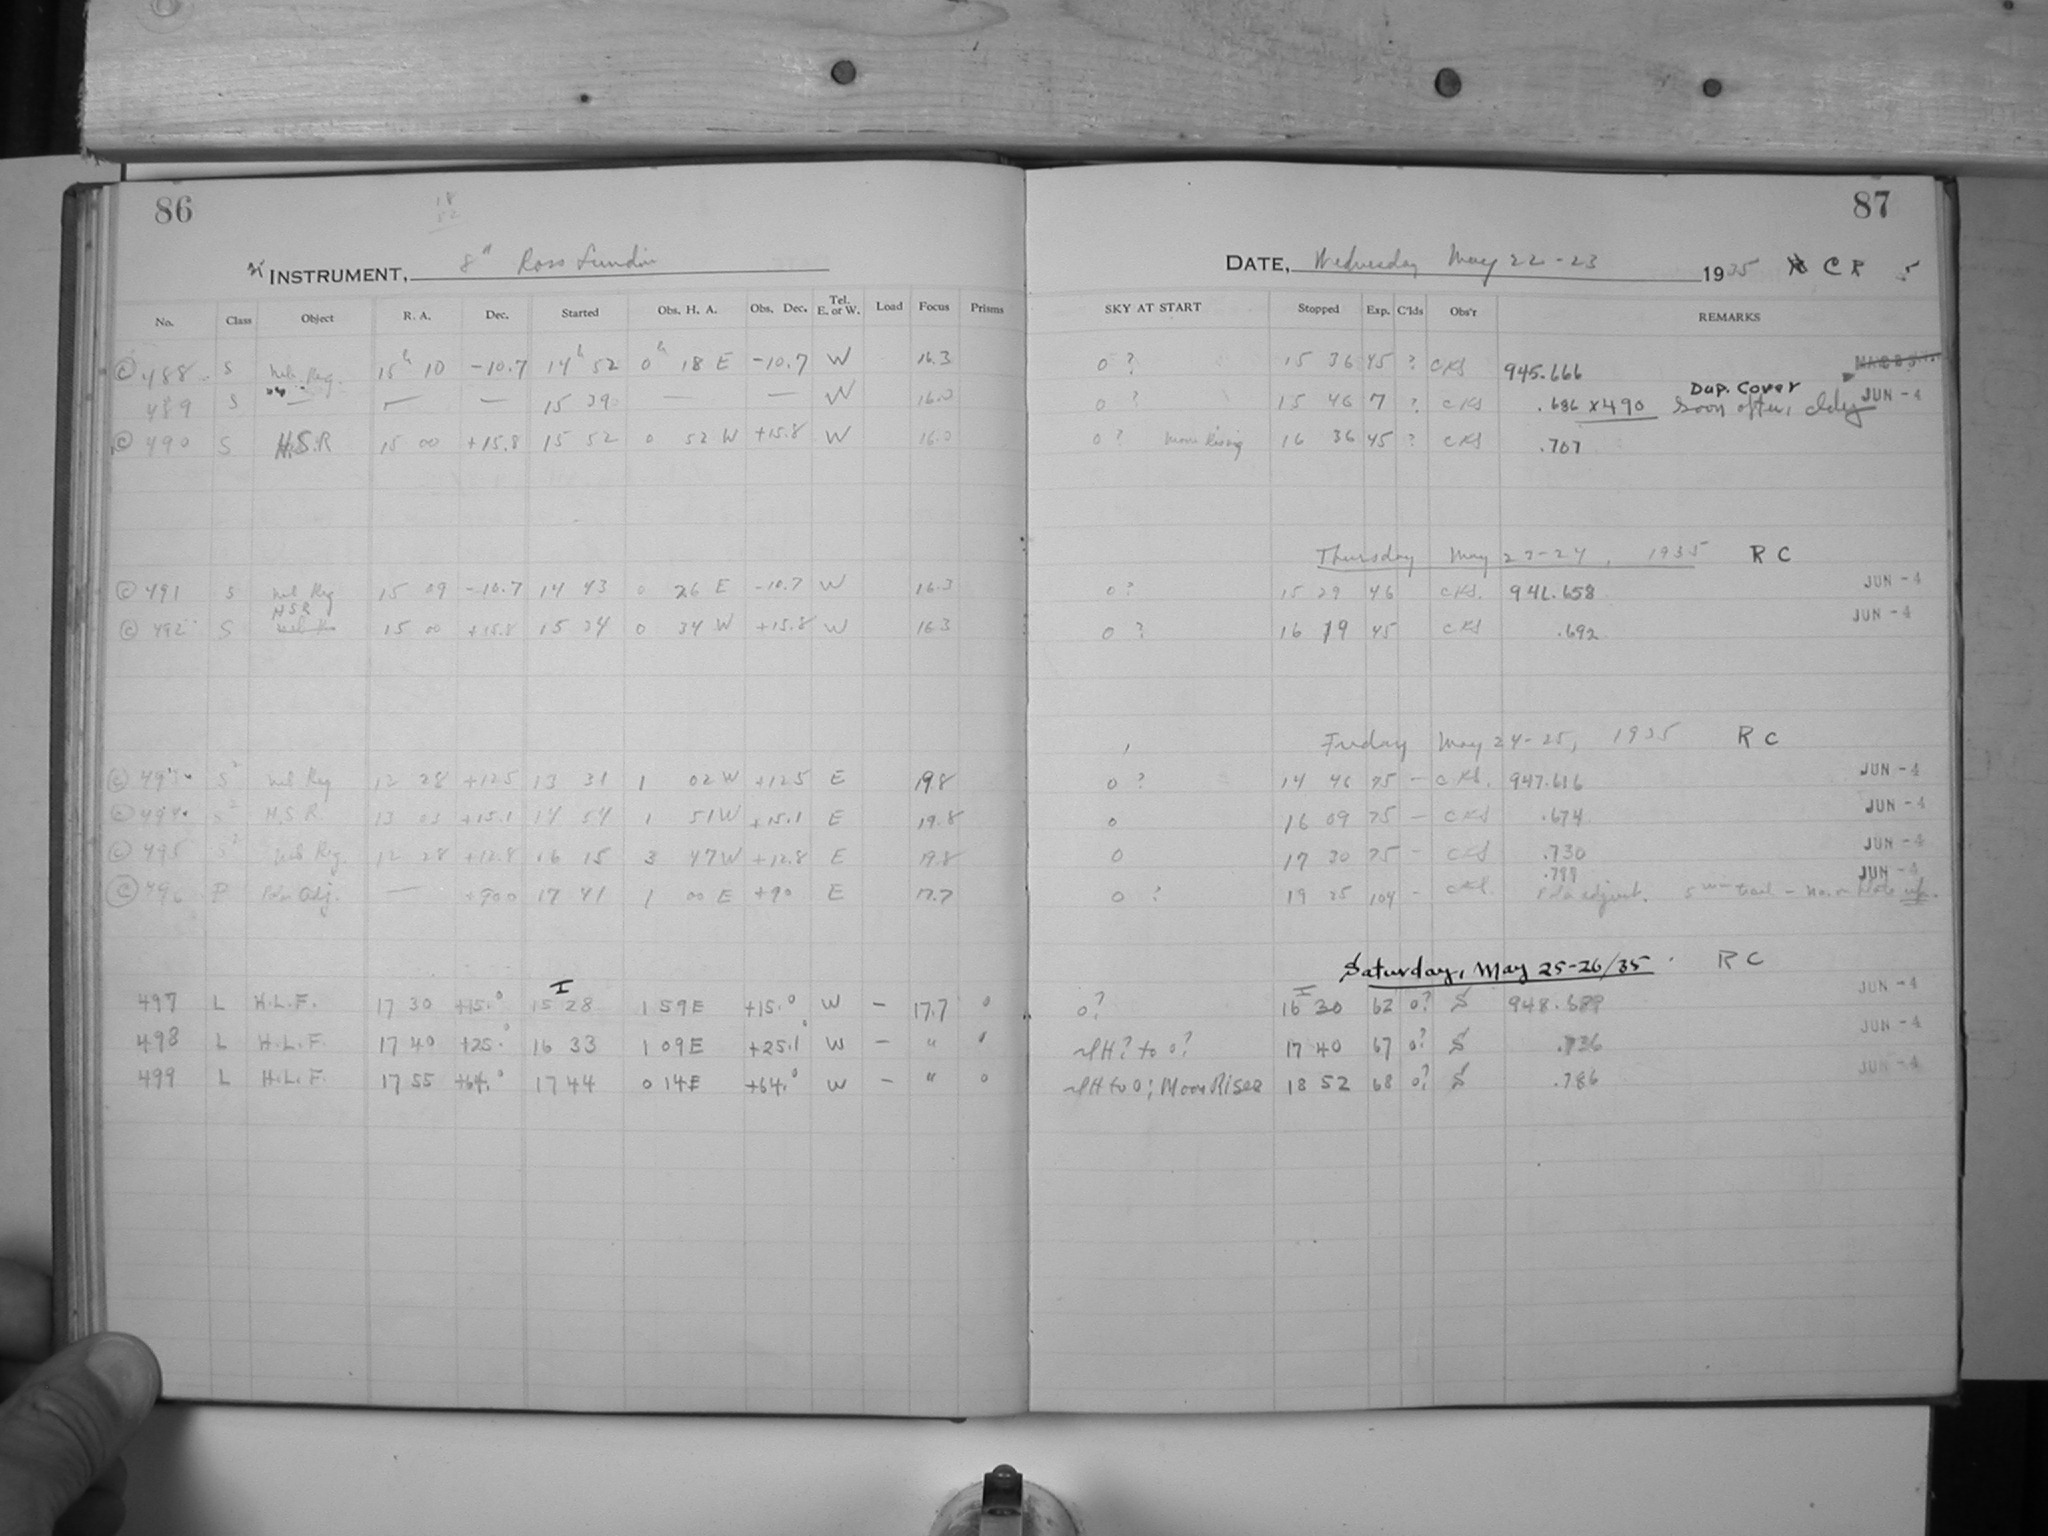 86
18
52
INSTRUMENT, 8" Ross Lundin
No. Class Object R. A. Dec. Started Obs. H. A. Obs. Dec. Tel. E. or W. Load Focus Prisms
© 488 S Neb. Reg. 15h 10 -10.7 14h 52 0h 18 E -10.7 W 16.3
489 S — — — 15 39 — — W 16.0
© 490 S H.S.R 15 00 +15.8 15 52 0 52 W +15.8 W 16.0
© 491 S Neb Reg 15 09 -10.7 14 43 0 26 E -10.7 W 16.3
© 492 S HSR 15 00 +15.8 15 34 0 34 W +15.8 W 16.3
© 493 S² Neb Reg 12 28 +12.5 13 31 1 02 W +12.5 E 19.8
© 494 S² H.S.R. 13 03 +15.1 14 54 1 51 W +15.1 E 19.8
© 495 S² Neb Reg. 12 28 +12.8 16 15 3 47 W +12.8 E 19.8
© 496 P Polar Adj. — +90.0 17 41 1 00 E +90 E 17.7
497 L H.L.F. 17 30 +15.° 15 28 1 59 E +15.° W — 17.7 0
498 L H.L.F. 17 40 +25.° 16 33 1 09 E +25.1° W — " 0
499 L H.L.F. 17 55 +64.° 17 44 0 14 E +64.° W — " 0
87
DATE, Wednesday May 22-23 1935 C R
SKY AT START Stopped Exp. C'lds Obs'r REMARKS
0 ? 15 36 45 ? CKS 945.666
0 ? 15 46 7 ? CKS .686 x490 Dup. Cover Soon after, cldy JUN -4
0 ? Moon Rising 16 36 45 ? CKS .707
Thursday May 23-24, 1935 R C
0 ? 15 29 46 CKS. 946.658 JUN -4
0 ? 16 19 45 CKS .692 JUN -4
Friday May 24-25, 1935 R C
0 ? 14 46 75 — CKS. 947.616 JUN -4
0 16 09 75 — CKS .674 JUN -4
0 17 30 75 — CKS .730 JUN -4
0 ? 19 25 104 — CKS. .799 Polar adjust. 5 min trail — No. on Plate up. JUN -4
Saturday, May 25-26/35 R C
0? 16 30 62 0? S 948.689 JUN -4
H? to 0? 17 40 67 0? S .736 JUN -4
H to 0; Moon Rises 18 52 68 0? S .786 JUN -4